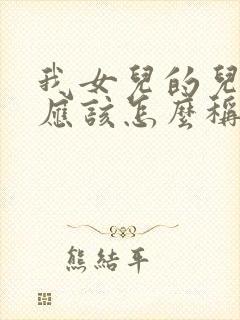 我女兒的兒
應該怎麼稱
熊結平